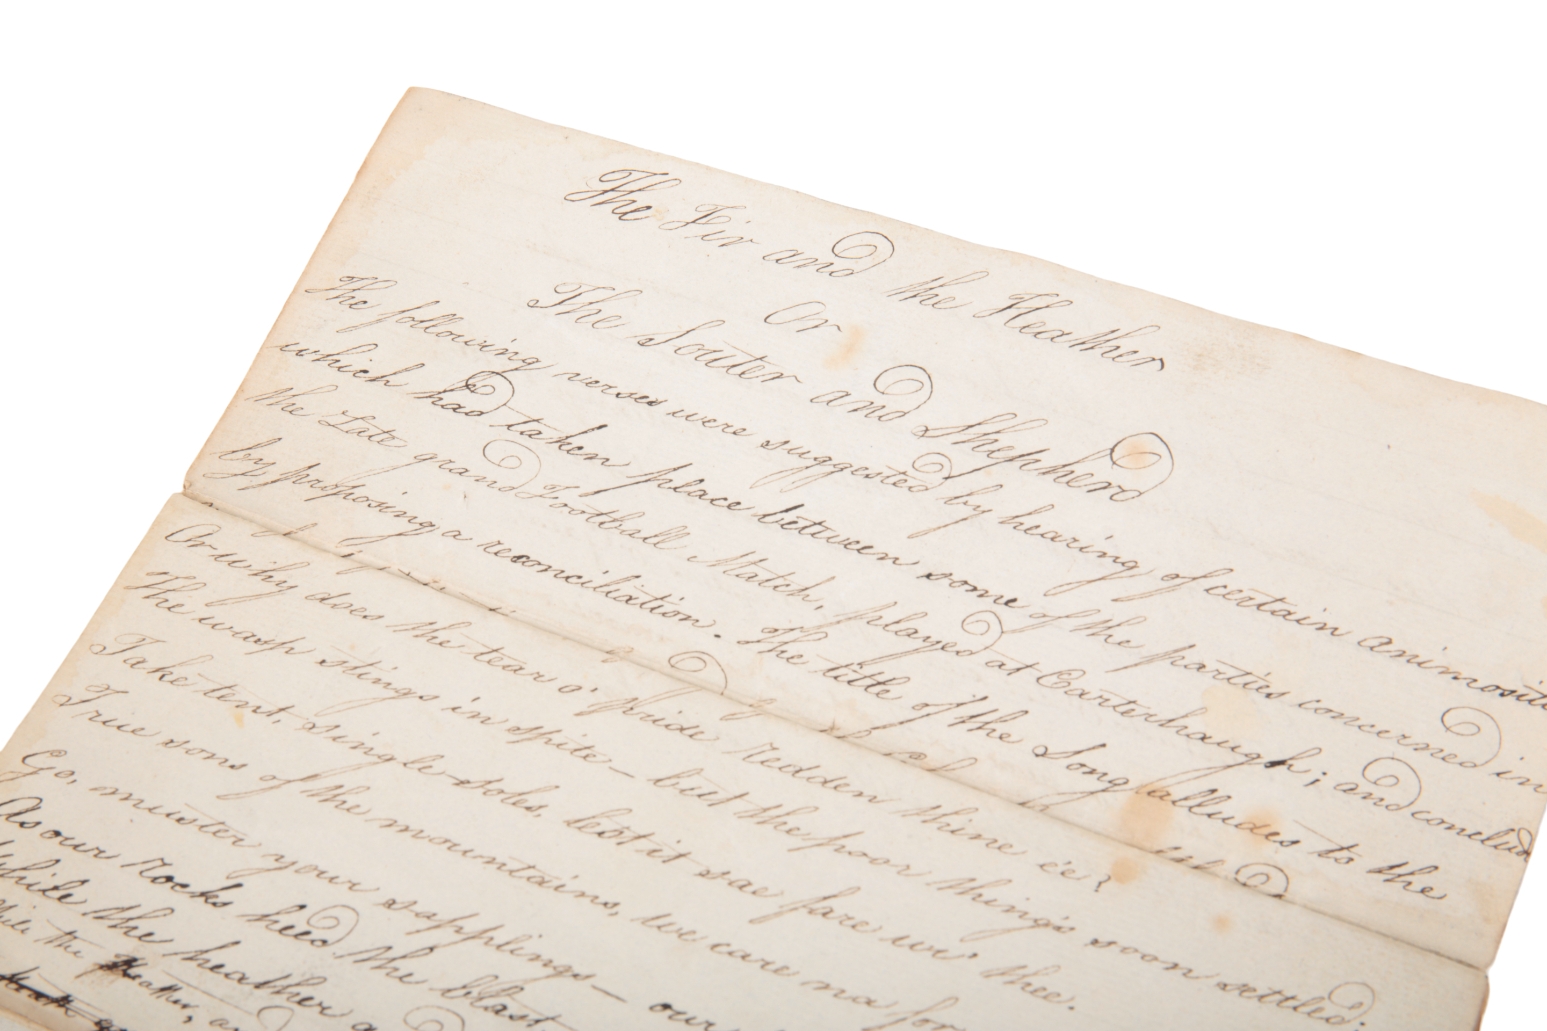 The Fir and the Heather
Or
The Souter and Shepherd
The following verses were suggested by hearing of certain animosit
which had taken place between some of the parties concerned in
the Late grand Football Match, played at Carterhaugh; and conclud
by proposing a reconciliation. The title of the Song alludes to the
Or why does the tear o' pride redden thine e'e?
The wasp stings in spite – but the poor thing's soon settled
Take tent, single soles, lest it sae fare wi' thee.
True sons of the mountains, we care na for
Go, muster your sapplings – our
As our rocks heed the blast
While the heather
While the heather,